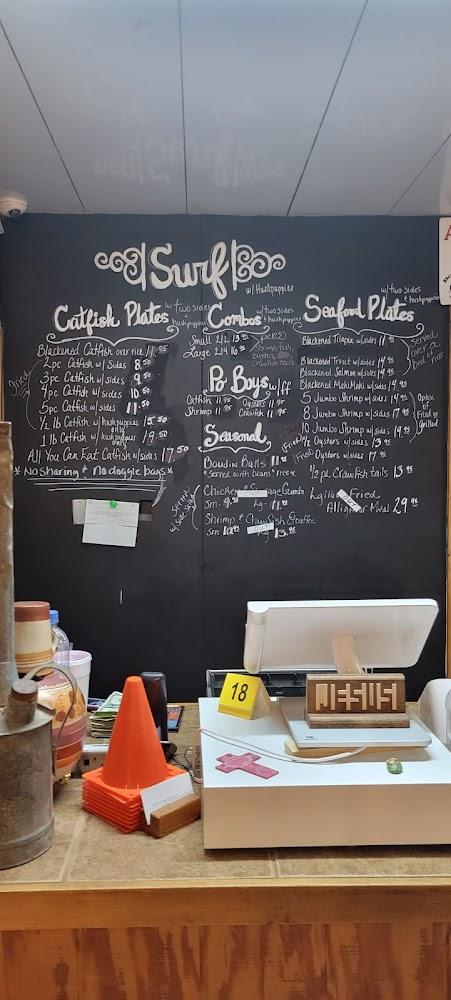 Surf
w/ Hushpuppies
Catfish Plates
w/two sides
& hushpuppies
Blackened Catfish over rice 11.95
2pc Catfish w/ sides 8.50
3pc Catfish w/ sides 9.50
4pc Catfish w/ sides 10.50
5pc Catfish w/ sides 11.50
1/2 lb Catfish w/ hushpuppies only
1 lb Catfish w/ hushpuppies only 9.50
fried
All You Can Eat Catfish w/sides 17.50
*No sharing & No doggie bags*
Combos
w/two sides
& hushpuppies
Small 2/2 13.95
Large 2/4 16.95
Pick(2)
shrimp, fish,
oysters,
crawfish tails
Po Boys w/ff
Catfish 11.95 Oysters 11.95
Shrimp 11.95 Crawfish 11.95
Seasonal
Boudin Balls 11.95
* served with beans & rice *
Served
w/ side salad
Chicken & Sausage Gumbo
Sm. 9.95 Lg. 11.95
Shrimp & Crawfish Etouffee
Sm Lg 13.95
Seafood Plates
w/two sides
& hushpuppies
Blackened Tilapia w/ sides 11.95
Blackened Trout w/ sides 14.95
Blackened Salmon w/ sides 14.95
Blackened Mahi Mahi w/ sides 14.95
Served
over a
bed of rice
5 Jumbo Shrimp w/ sides
8 Jumbo Shrimp w/ sides
10 Jumbo Shrimp w/ sides 19.95
Option
Fried
or
Grilled
(Fried) 1/2 Oysters w/ sides 13.95
(Fried) Oysters w/ sides 17.95
1/2 pc Crawfish tails 13.95
Fried
Alligator Meal 29.95
18
JESUS